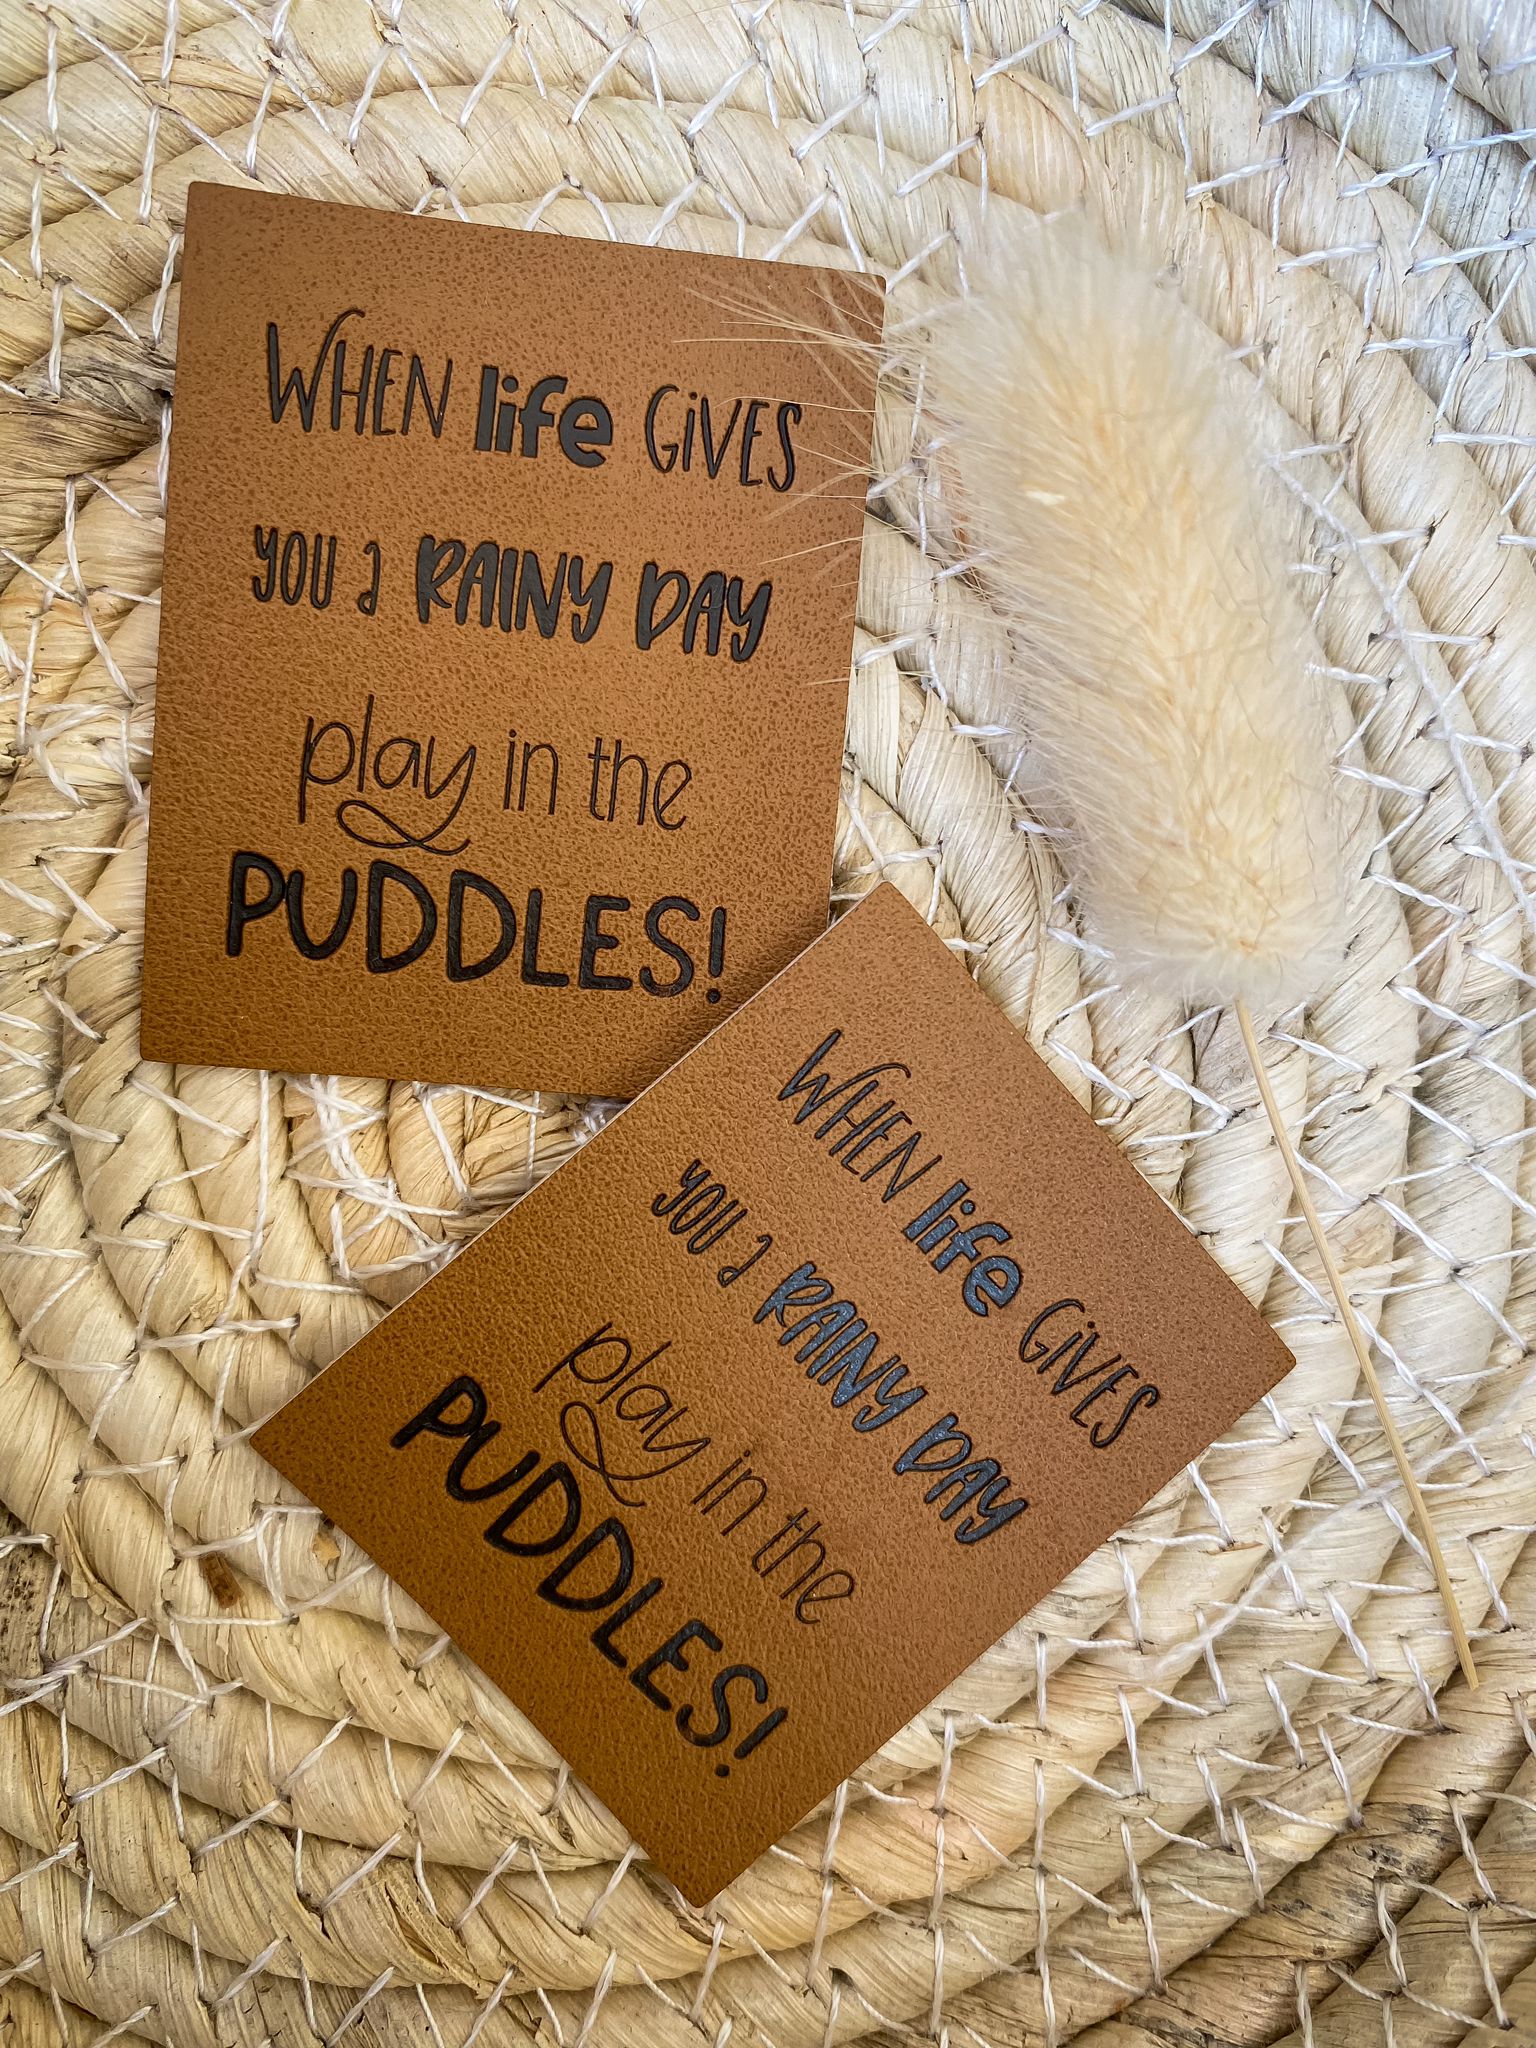 WHEN life GiVES
YOU a RAINY DAY
play in the
PUDDLES!
WHEN life GiVES
YOU a RAINY DAY
play in the
PUDDLES!